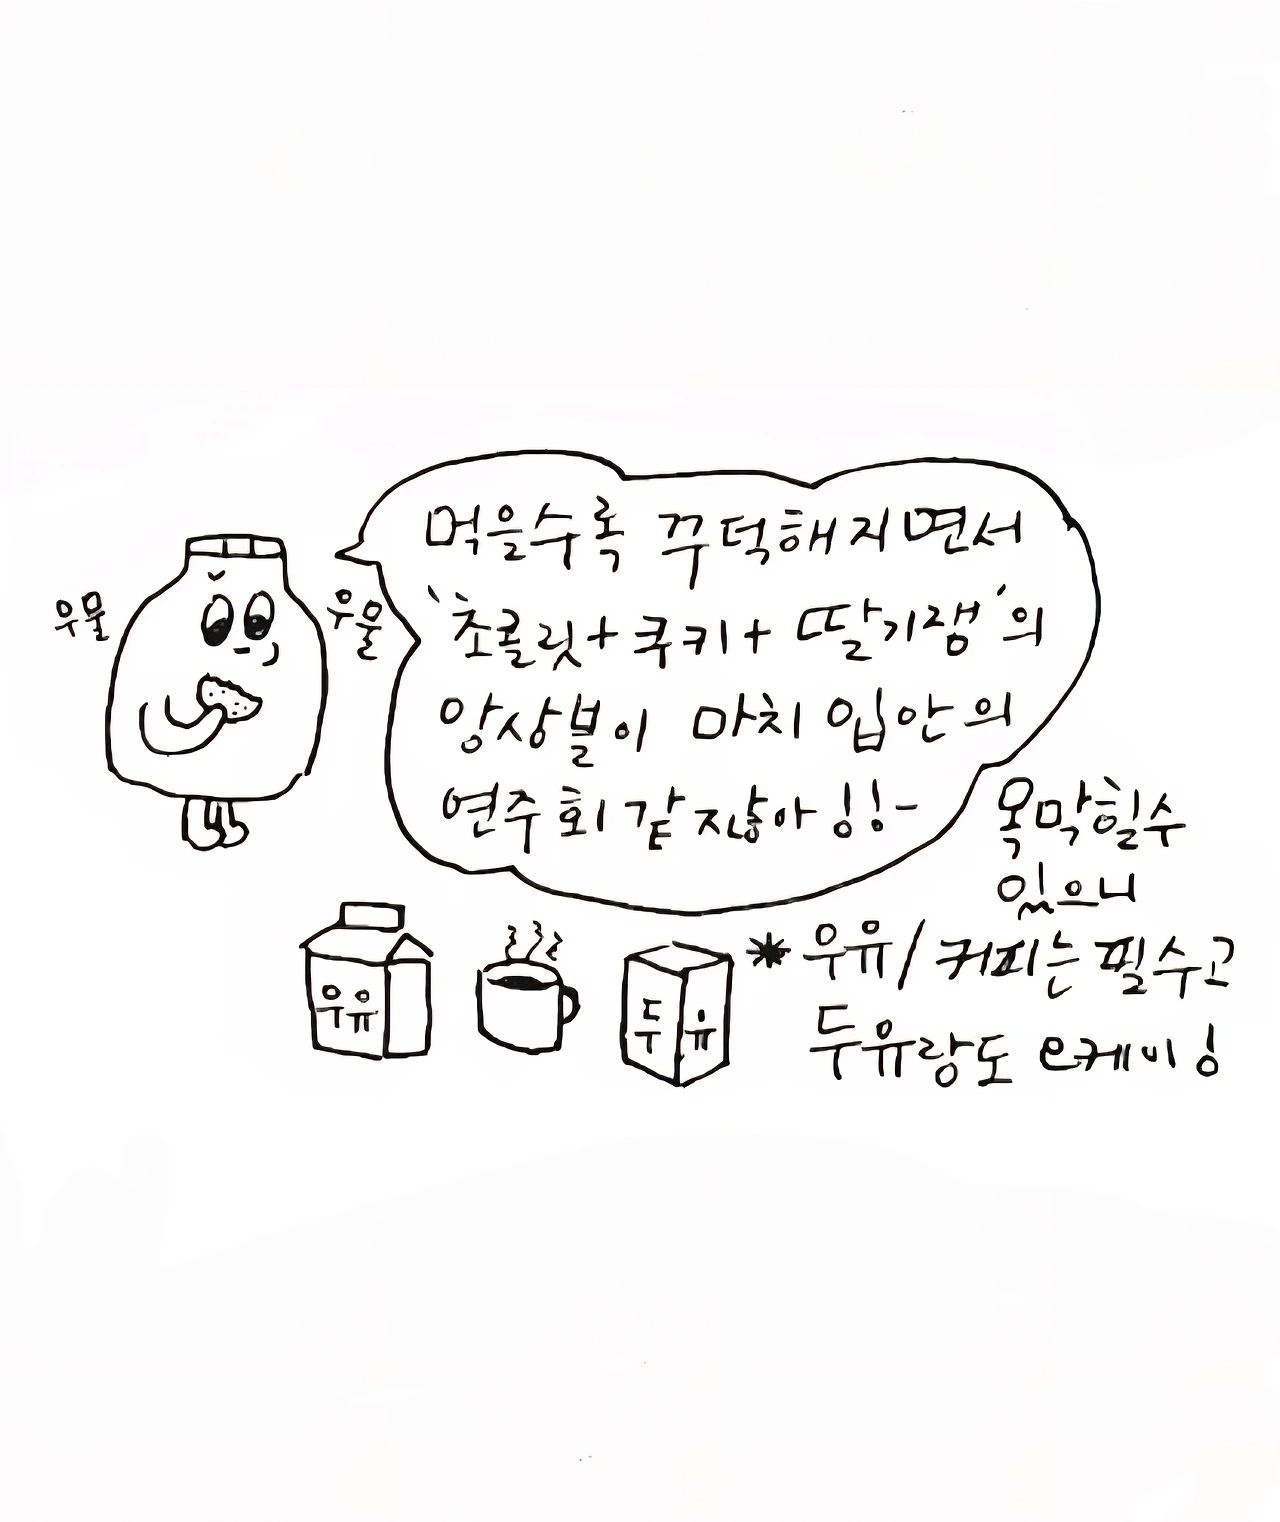 먹을수록 꾸덕해지면서
'초콜릿+쿠키+딸기잼'의
앙상블이 마치 입안의
연주회 같잖아잉!-
우물
우물
목막힐수
있으니
*우유/커피는 필수고
두유랑도 오케이잉
우유
두유